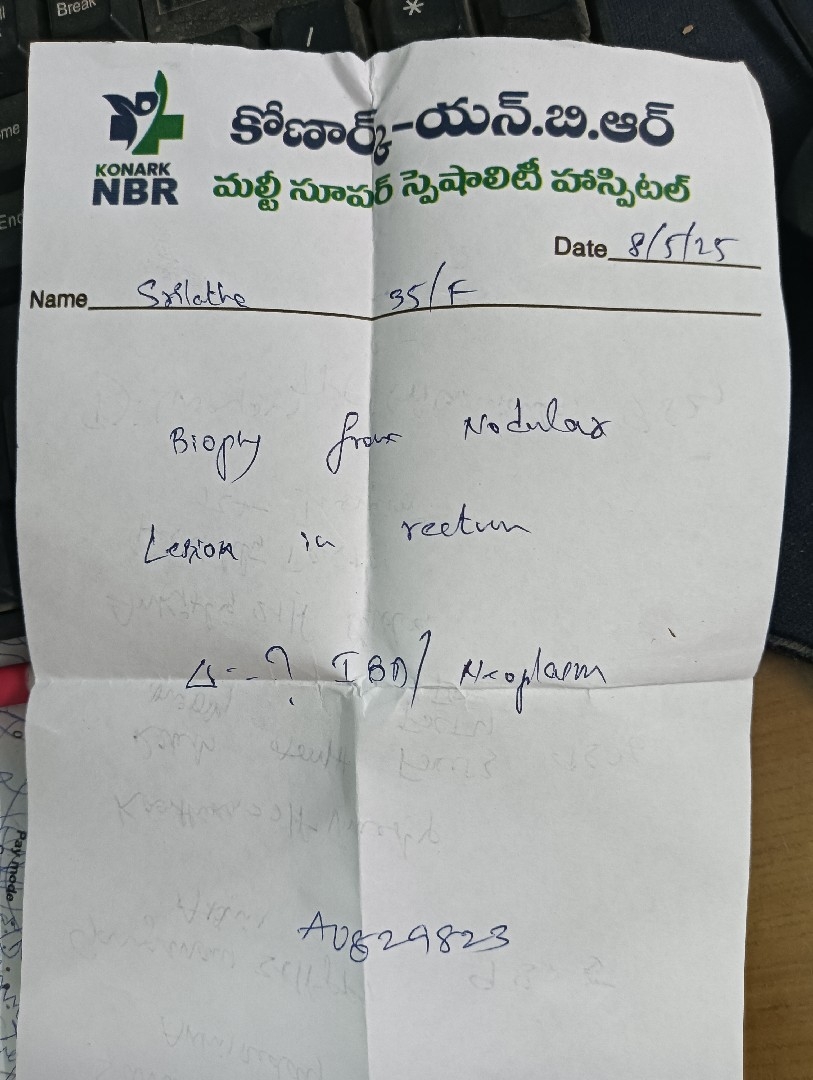 Break
*
KONARK
NBR
కోణార్క్-యన్.బి.ఆర్
మల్టీ సూపర్ స్పెషాలిటీ హాస్పిటల్
Date 8/5/25
Name Srilatha 35/F
Biopsy from Nodular
Lesion in rectum
Δ -- ? IBD/ Neoplasm
A0829823
Pay mode